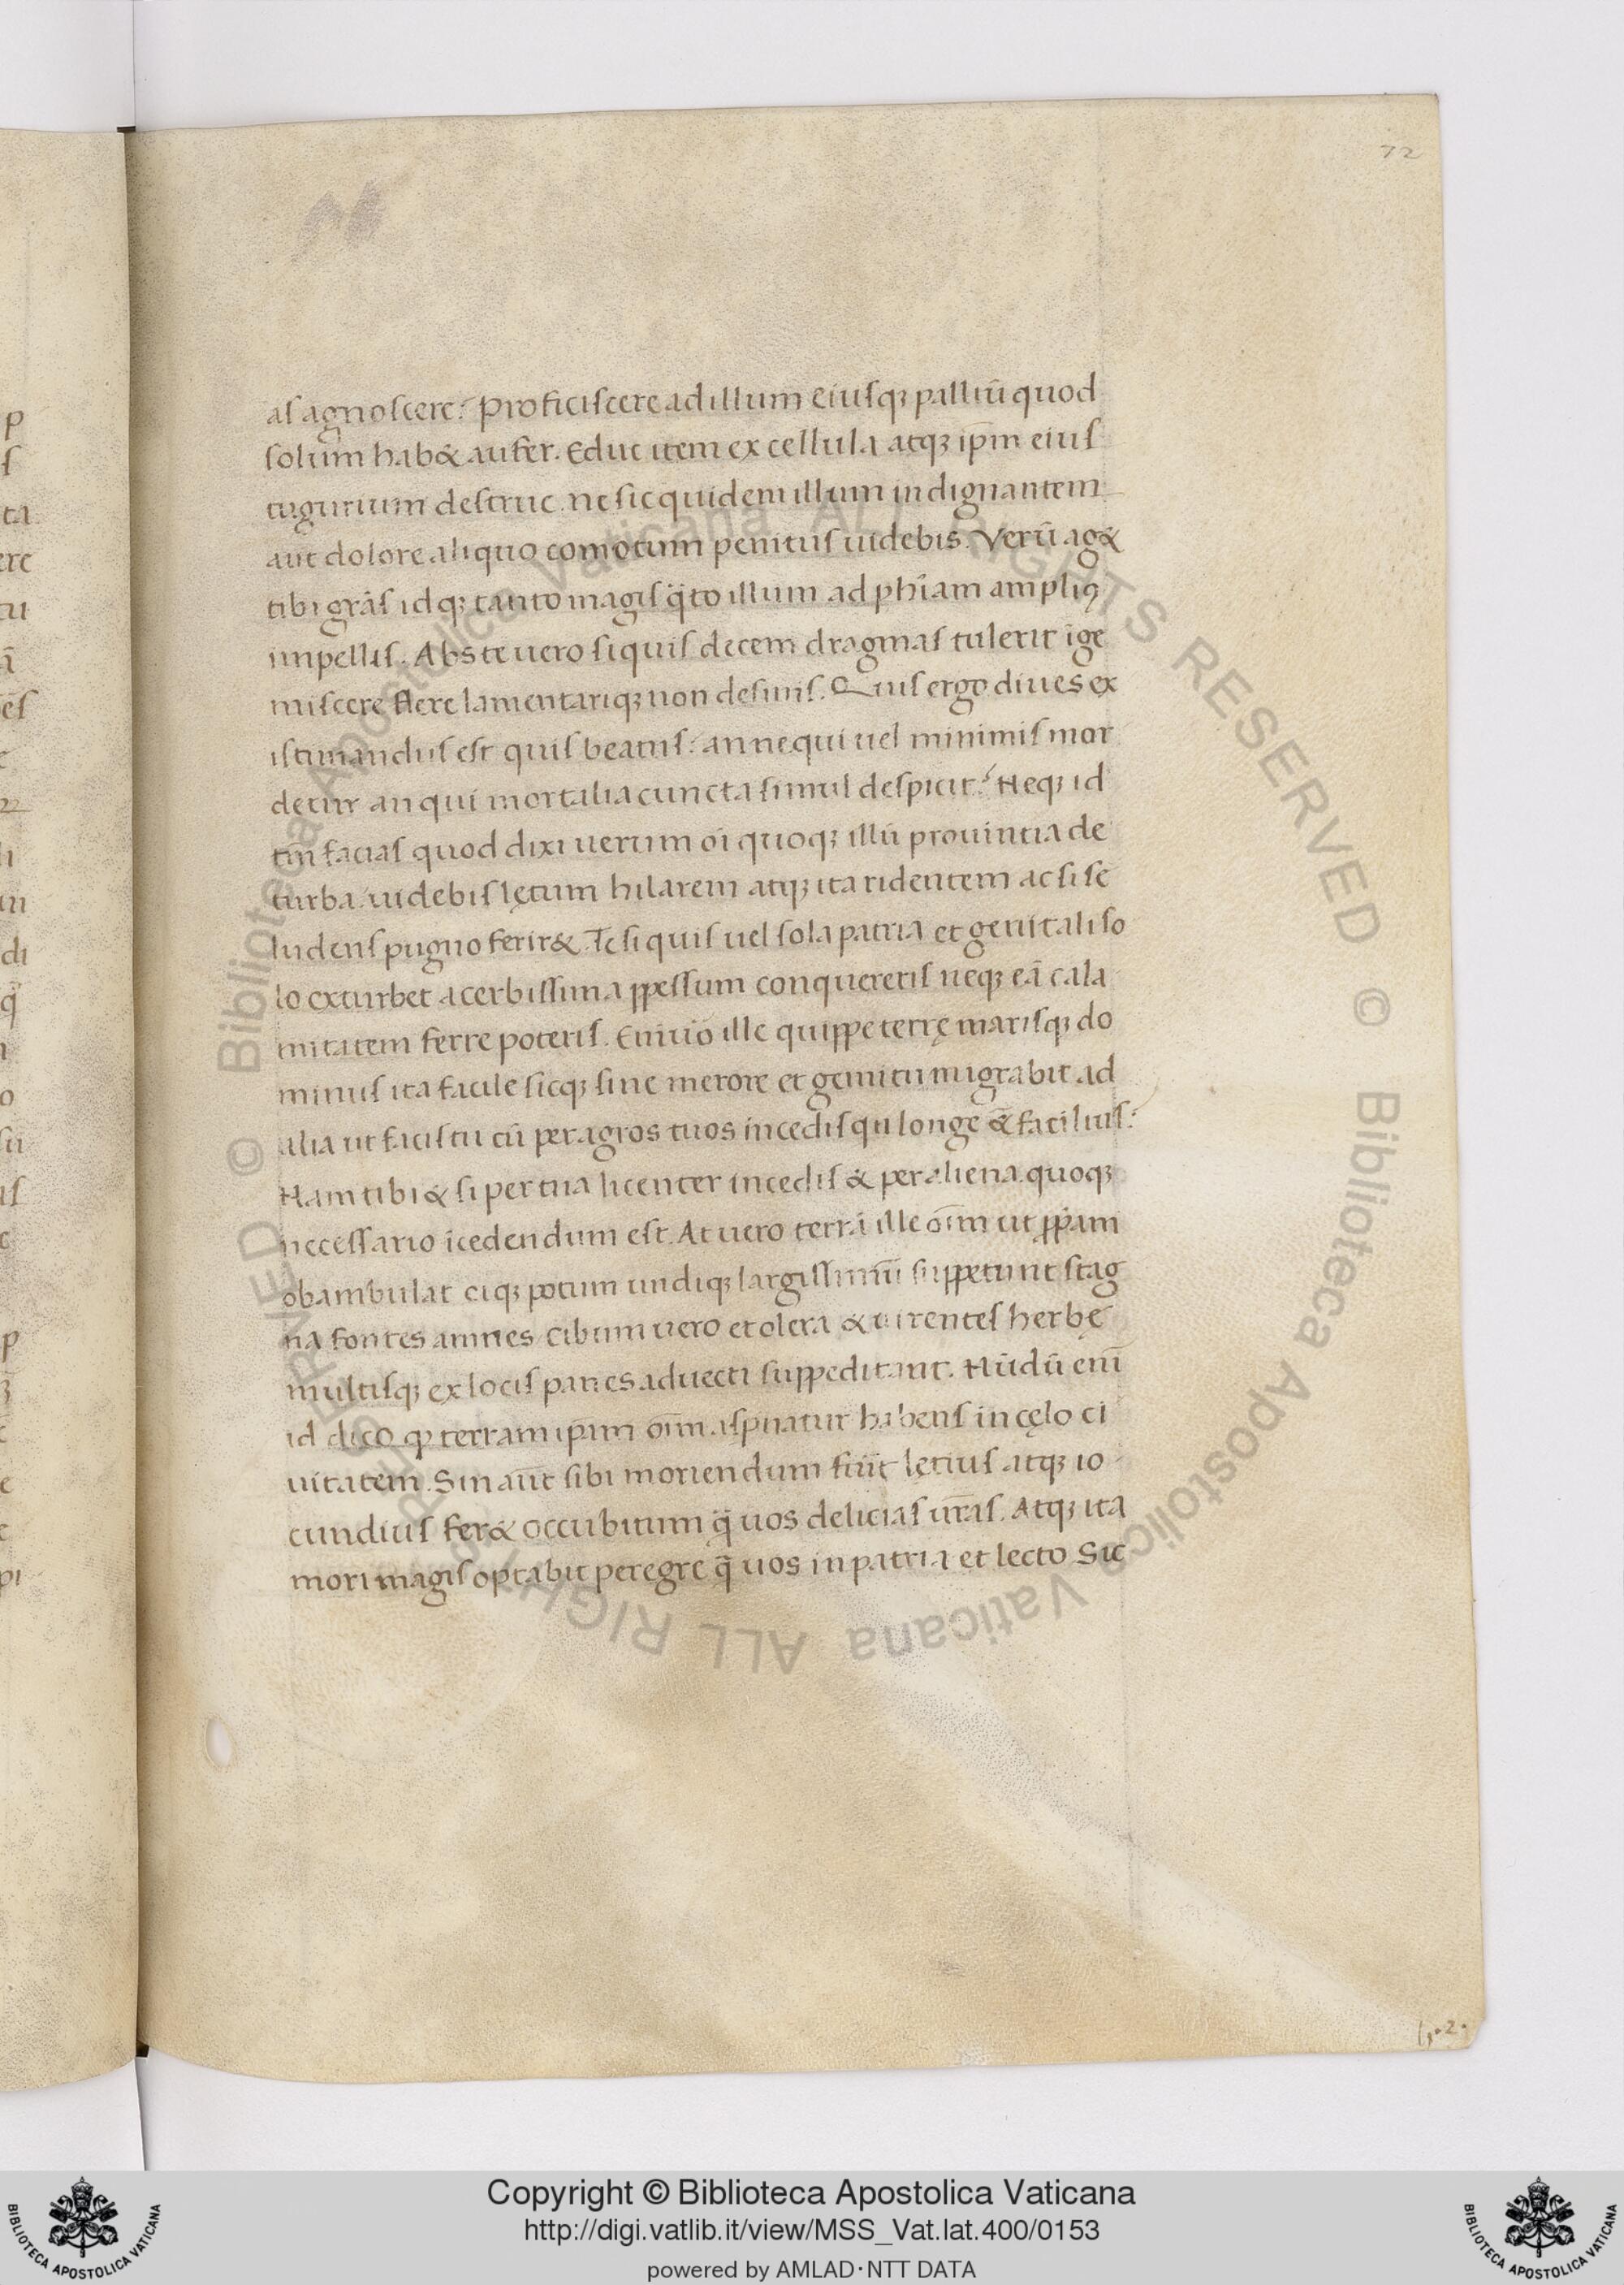 72
as agnoscere? Proficiscere ad illum eiusq; palliũ quod
solum hab& aufer. Educ item ex cellula atq; ip̃m eius
tugurium destruc. ne sic quidem illum indignantem
aut dolore aliquo comotum penitus uidebis. Verũ ag&
tibi grãs idq; tanto magis q̃to illum ad phĩam ampliꝯ
impellis. Abs te uero siquis decem dragmas tulerit ĩge
miscere flere lamentariq; non desinis. Quis ergo diues ex
istimandus est quis beatus? anne qui uel minimis mor
detur an qui mortalia cuncta simul despicit? Neq; id
tm̃ facias quod dixi uerum oĩ quoq; illũ prouintia de
turba. uidebis lętum hilarem atq; ita ridentem ac si se
ludens pugno ferir&. Te si quis uel sola patria et genitali so
lo exturbet acerbissima ꝓpessum conquereris neq; eã cala
mitatem ferre poteris. Enĩuõ ille quippe terrę marisq; do
minus ita facile sicq; sine merore et gemitu migrabit ad
alia ut facis tu cũ per agros tuos incedis qñ longe & facilius?
Nam tibi & si per tua licenter incedis & per aliena quoq;
necessario ĩcedendum est. At uero terrã ille oĩm ut ꝓpam
obambulat eiq; potum undiq; largissimũ suppetunt stag
na fontes amnes cibum uero et olera & uirentes herbę
multisq; ex locis panes aduecti suppeditant. Nũdũ enĩ
id dico ꝙ terram ip̃am oĩm aspnatur habens in cęlo ci
uitatem. Sin aũt sibi moriendum fiũt lętius atq; io
cundius fer& occubitum q̃ uos delicias ur̃as. Atq; ita
mori magis optabit peregre q̃ uos in patria et lecto Sic
p
s
ta
ere
tu
ã
ẽs
li
di
q̃
o
p
e
pi
© Biblioteca Apostolica Vaticana ALL RIGHTS RESERVED © Biblioteca Apostolica Vaticana ALL RIGHTS RESERVED
Copyright © Biblioteca Apostolica Vaticana
http://digi.vatlib.it/view/MSS_Vat.lat.400/0153
powered by AMLAD·NTT DATA
BIBLIOTECA APOSTOLICA VATICANA
BIBLIOTECA APOSTOLICA VATICANA